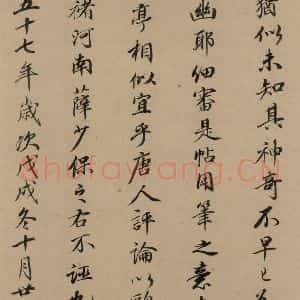 猶似未知其神奇不早已
幽耶細審是帖用筆之意
亭相似宜乎唐人評論以
褚河南薛少保之右不誣也
五十七年歲次戊戌冬十月廿
Shufawang.CN